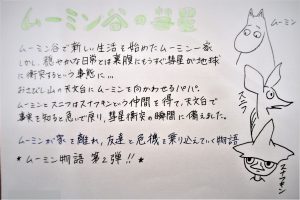 ムーミン谷の彗星
ムーミン谷で新しい生活を始めたムーミン一家
しかし、穏やかな日常とは裏腹にもうすぐ彗星が地球
に衝突するという事態に…
おさびし山の天文台にムーミンを向かわせるパパ。
ムーミンとスニフはスナフキンという仲間を得て、天文台で
事実を知ると急いで戻り、彗星衝突の瞬間に備えました。
ムーミンが家を離れ、友達と危機を乗り越えていく物語
*ムーミン物語 第2弾!!*
ムーミン
スニフ
スナフキン